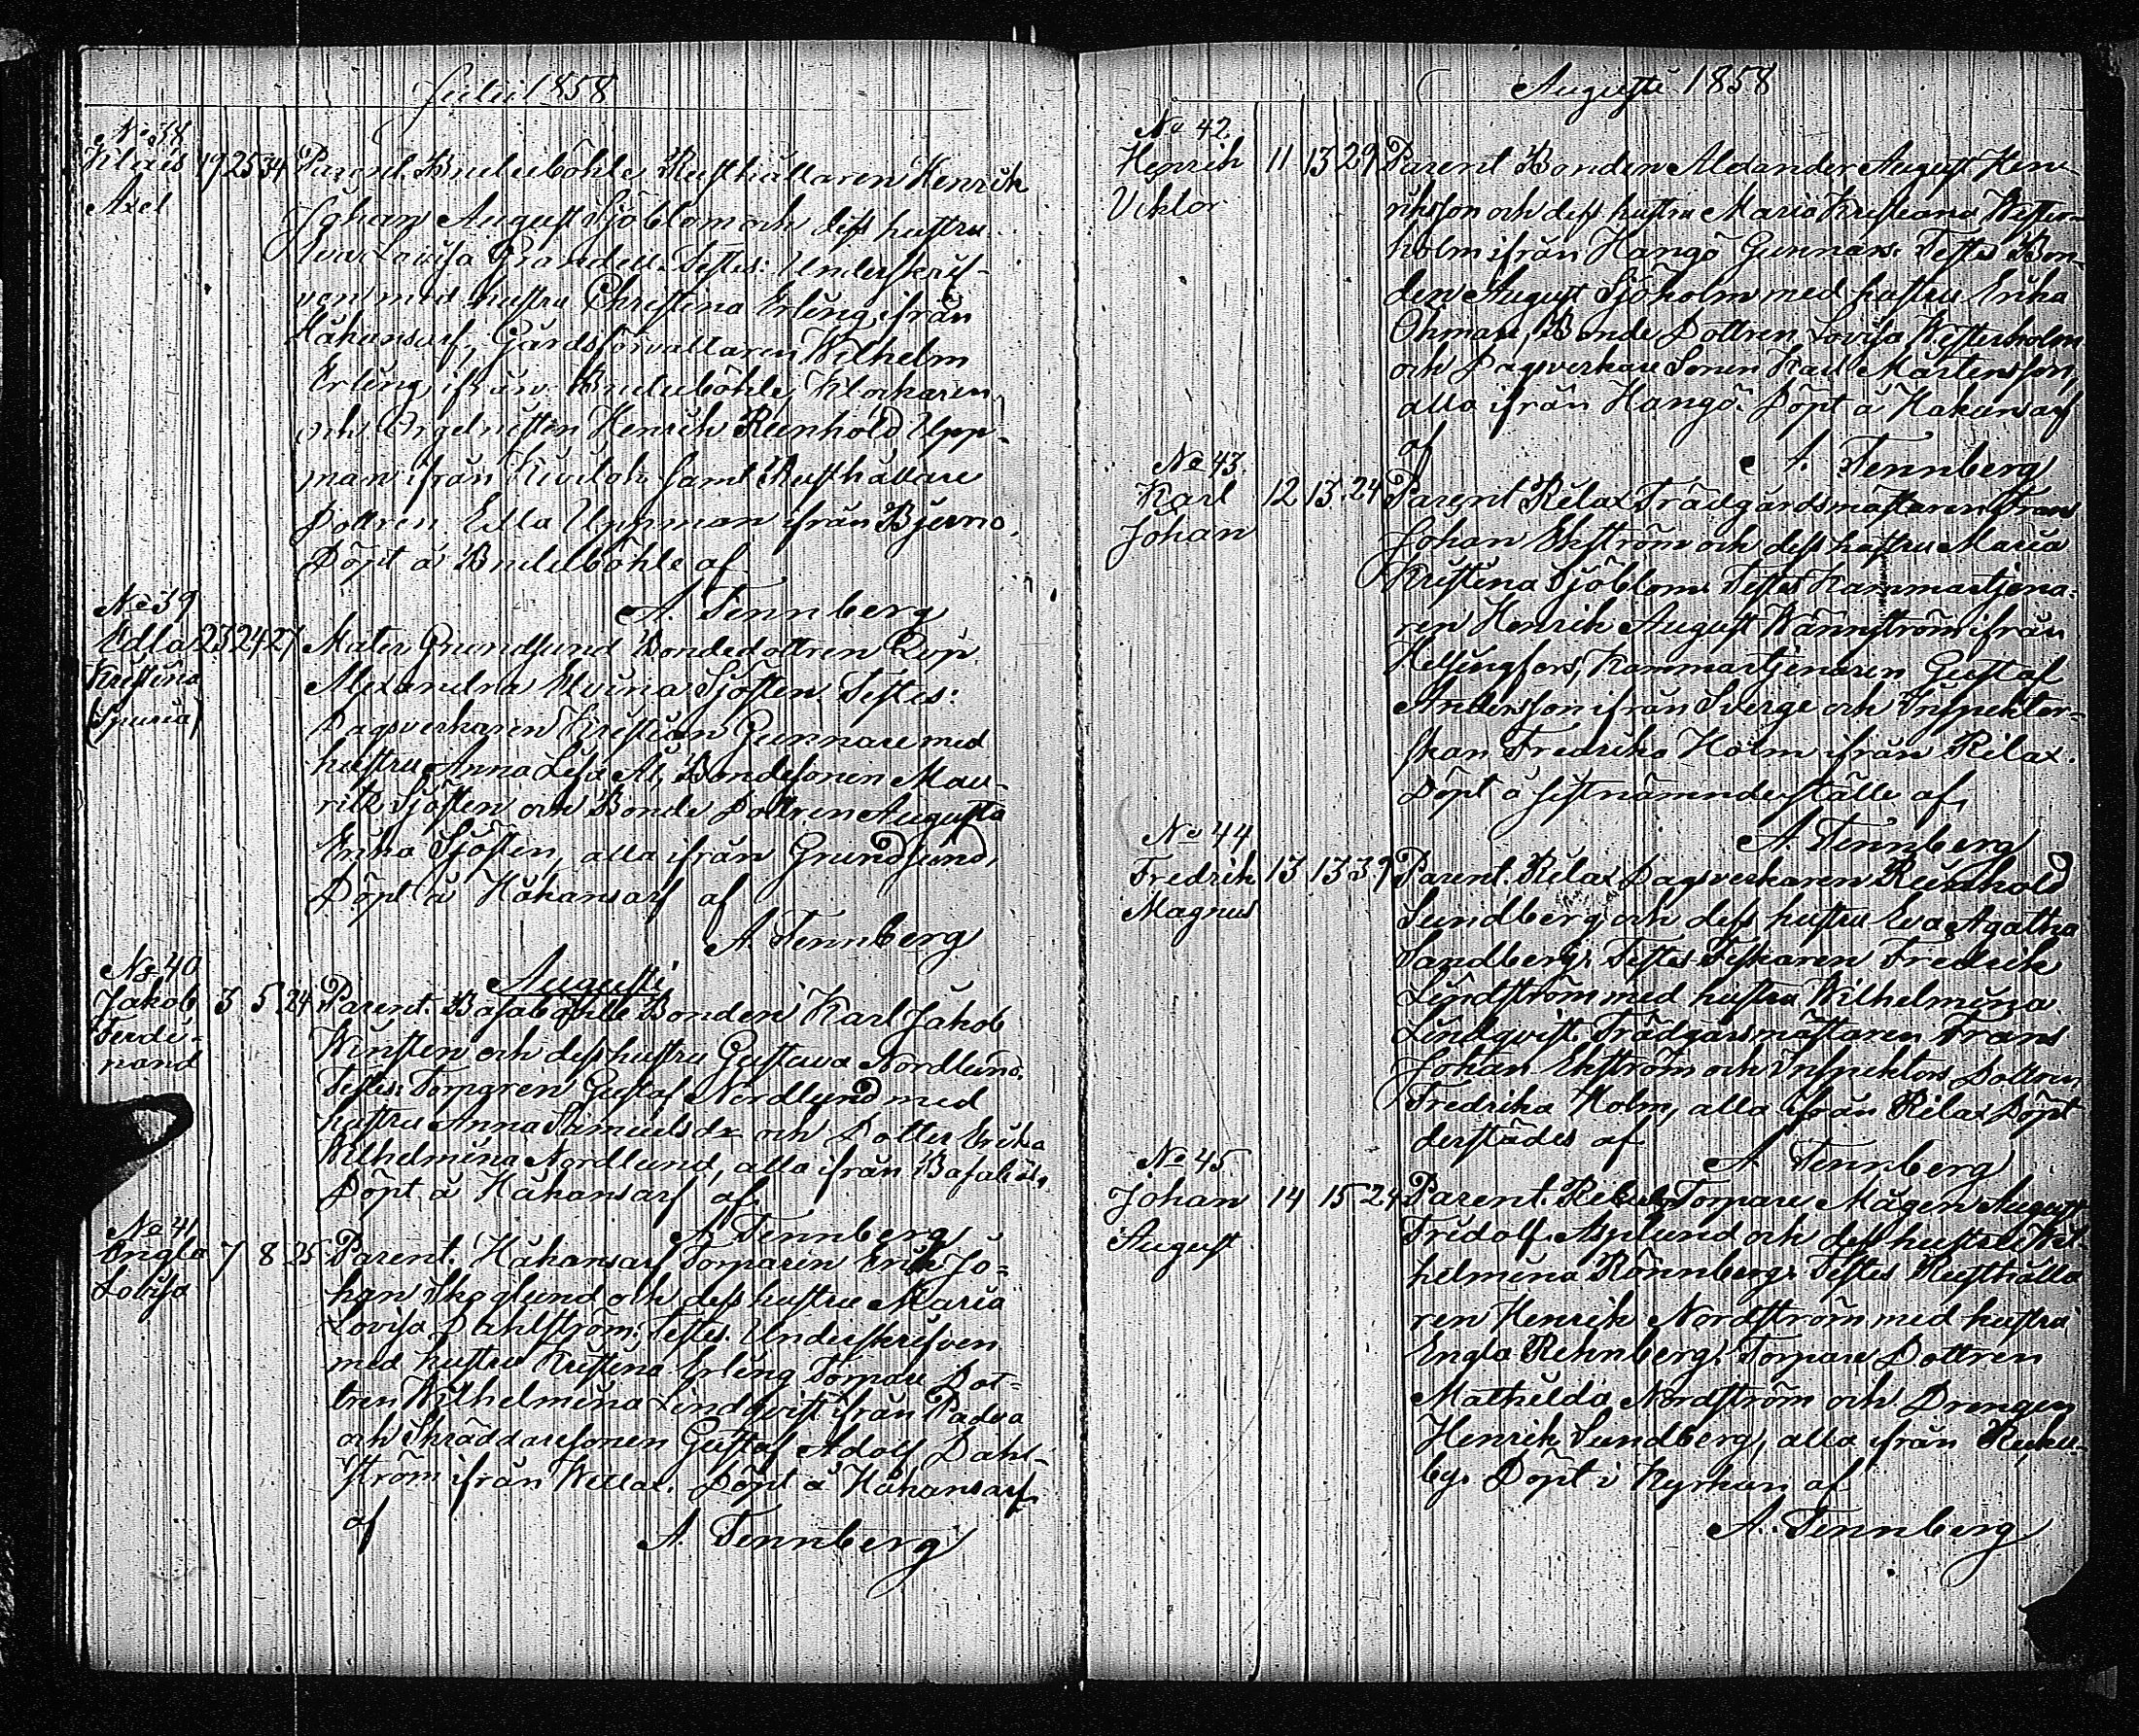 Julii 1858
No 38
Klaës 19 25 34 Parent. Bruleböhle Rusthållaren Henrik
Axel
Johan August Sjöblom och dess hustru
Eva Lovisa Grandell. Testes: Underskrif-
ven med hustru Christina Erling ifrån
Håkansarf, Gårdsförvaltaren Wilhelm
Erling ifrån Bruleböhle, Klockaren
och Orgelnisten Henrik Reinhold Upp-
man ifrån samt Rusthållare
Dottren Edla Uppman ifrån Bjerno.
Döpt å Bruleböhle af
A. Tennberg
No 39
Edla 23 24 27 Mater Grundsund Bondedottren Pig.
Kristina
(Spuria)
Alexandra Elvina Sjösten. Testes:
Dagsverkaren Kristian Gunnare med
hustru Anna Lisa Al, Bondesonen Mau-
ritz Sjösten och Bonde Dottren Augusta
Erika Sjösten, alla ifrån Grundsund,
Döpt å Håkansarf af
A. Tennberg
Augusti
No 40
Jakob 3 5 24 Parent. Basaböhle Bonden Karl Jakob
Ferdi-
nand
Winsten och dess hustru Gustava Nordlund.
Testes: Torpgren Gustaf Nordlund med
hustru Anna Samuels dr och Dotter Erika
Wilhelmina Nordlund, alla ifrån
Döpt å Håkansarf af
A. Tennberg
No 41
Engla 7 8 25 Parent. Håkansarf Torparen Erik Jo-
Lovisa
han Skoglund och dess hustru Maria
Lovisa Dahlström. Testes. Underskrifven
med hustru Kristina Erling Torpare Dot-
tren Wilhelmina Lindqvist ifrån Padva
och Skräddaresonen Gustaf Adolf Dahl-
ström ifrån Wellar. Döpt å Håkansarf
af
A. Tennberg
Augusti 1858
No 42
Henrik 11 13 29 Parent Bonden Alexander August Hen-
Viktor
riksson och dess hustru Maria Kristiana Wester-
holm ifrån Hangö Gunnars. Testes Bon-
den August Sjöholm med hustru Erika
Öhman, Bonde Dottren Lovisa Westerholm
och Dagsverkare Sonen Karl Mårtensson,
alla ifrån Hangö. Döpt å Håkansarf
af
A. Tennberg
No 43
Karl 12 13 24 Parent Rilax Trädgårdsmästaren Frans
Johan
Johan Ekström och dess hustru Maria
Kristina Sjöblom. Testes Kammartjena-
ren Henrik August Wännström ifrån
Helsingfors, Kammartjenaren Gustaf
Andersson ifrån Sverge och Inspektor-
skan Fredrika Holm ifrån Rilax.
Döpt å sistnämnde ställe af
A. Tennberg
No 44
Fredrik 13 13 39 Parent. Rilax Dagsverkaren Reinhold
Magnus
Sundberg och dess hustru Eva Agatha
Sandberg. Testes Fiskaren Fredrik
Lindström med hustru Wilhelmina
Lindqvist. Trädgårsmästaren Frans
Johan Ekström och Inspektors Dottren
Fredrika Holm, alla ifrån Rilax Döpt
derstädes af
A Tennberg
No 45
Johan 14 15 24 Parent. Torpare Mågen August
August
Fridolf Asplund och dess hustru Wil-
helmina Rönnberg. Testes Rusthålla
ren Henrik Nordström med hustru
Engla Rehnberg. Torpare Dottren
Mathilda Nordström och Drengen
Henrik Sundberg, alla ifrån
by. Döpt i Kyrkan af
A. Tennberg